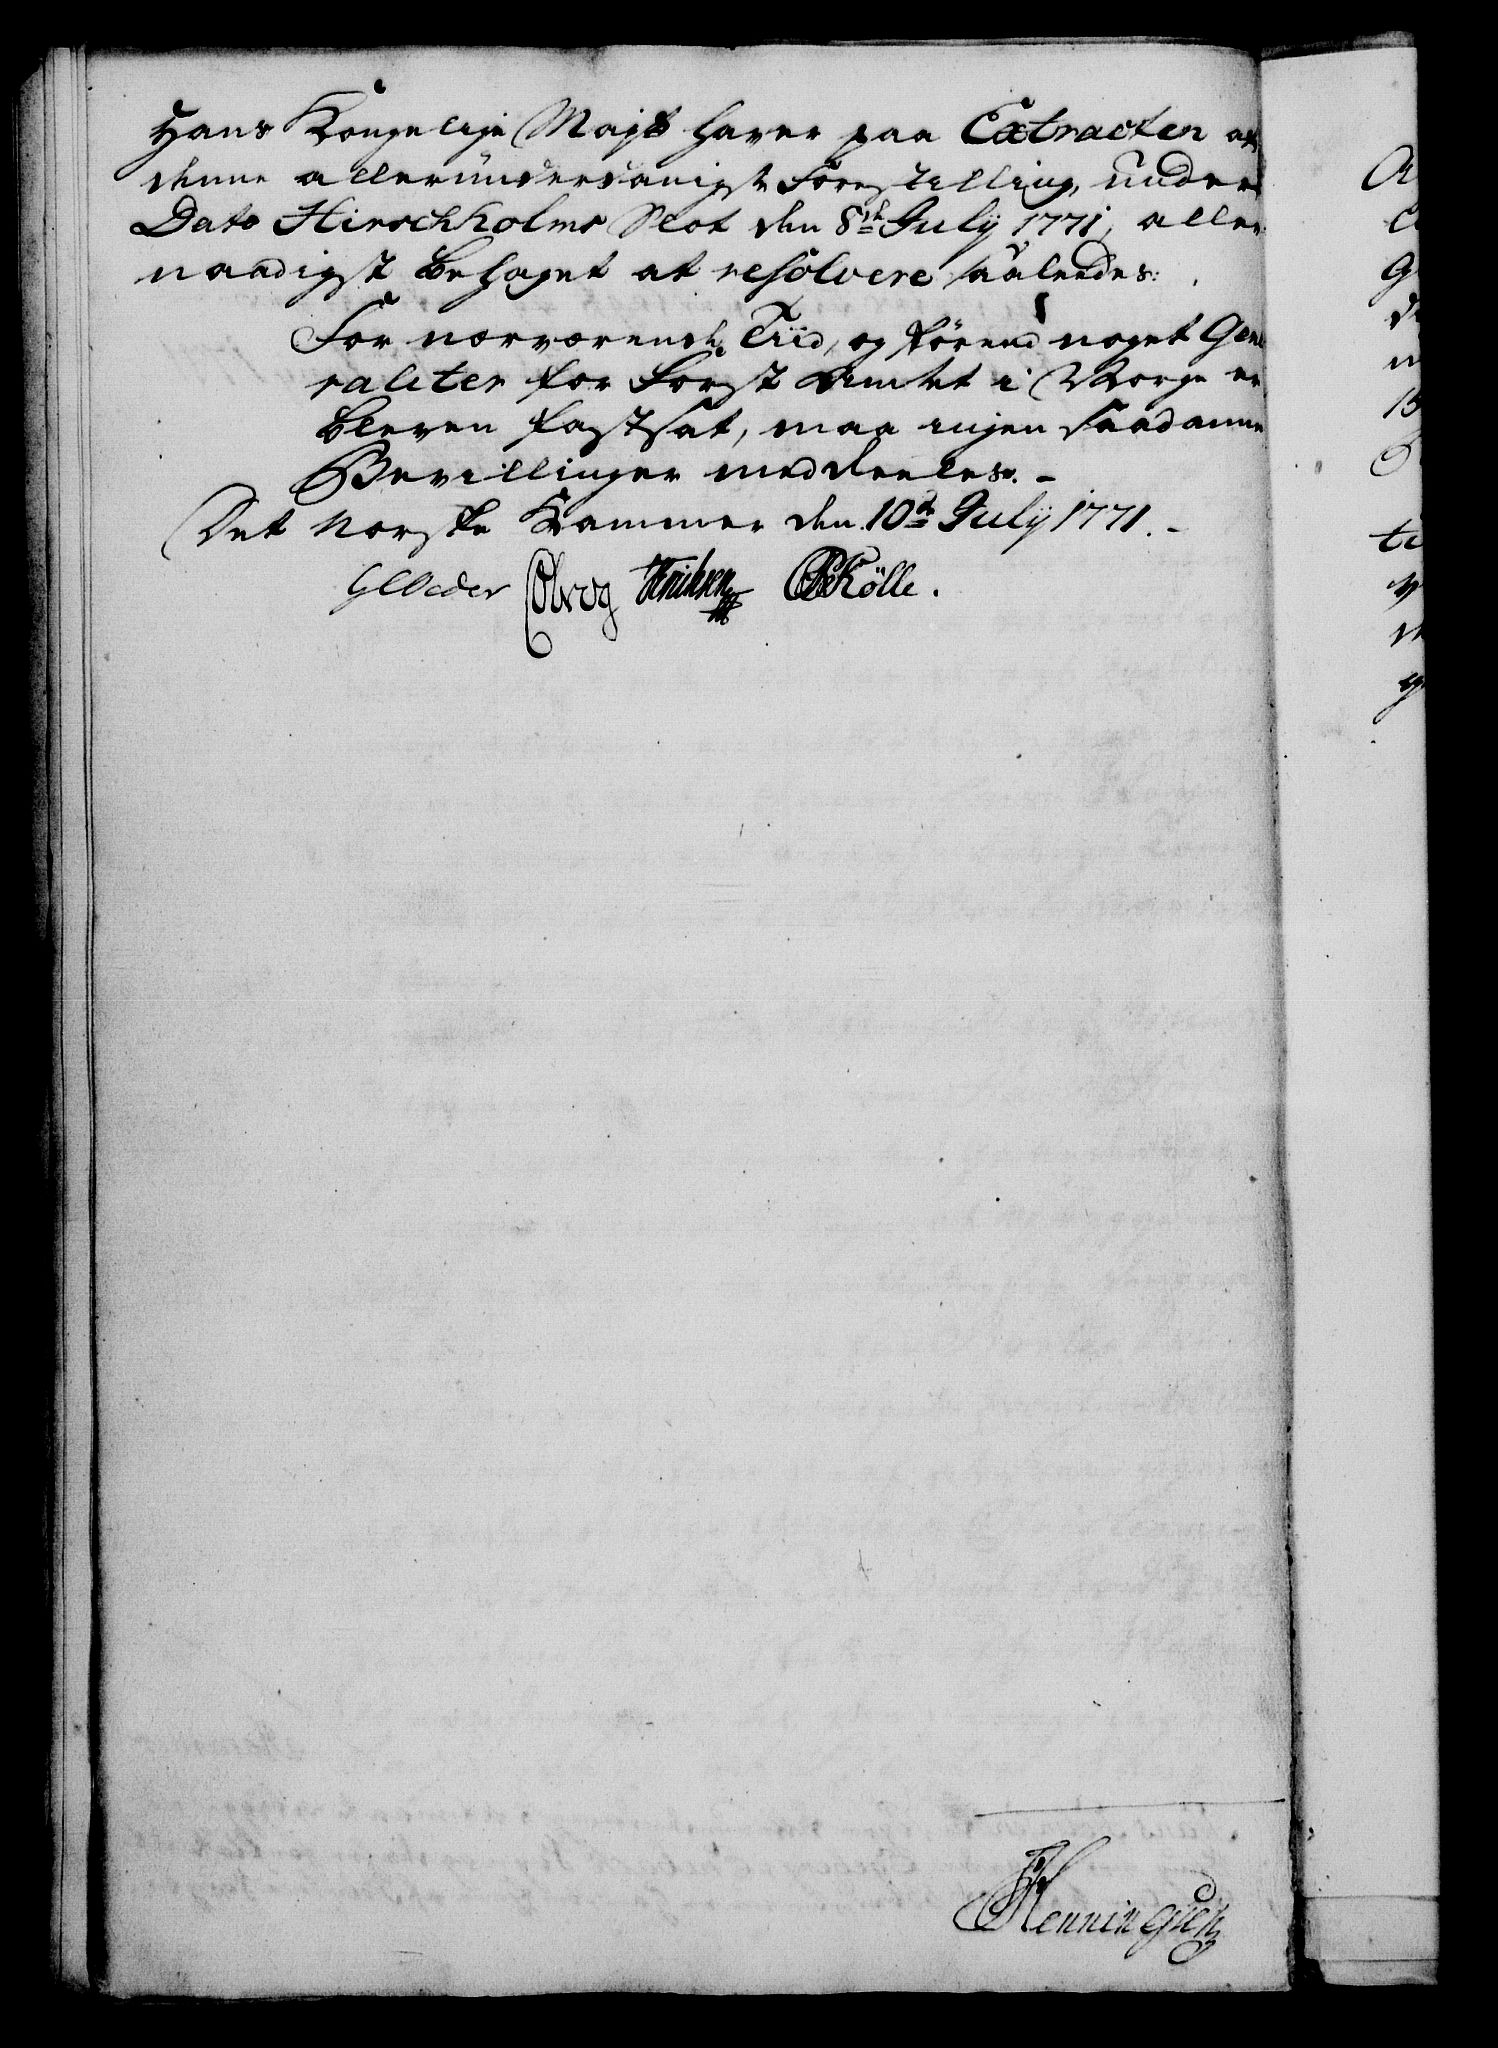 Hans Kongelige Majt haver paa Extracten af
denne allerunderdanigste Forestilling, under
Dato Hirschholms Slot den 8de July 1771, aller-
naadigst behaget at resolvere saaledes:
For nærværende Tiid, og førend noget Gene
raliter for Forst Amtet i Norge er
bleven fastsat, maa ingen saadanne
Bevillinger meddeeles. -
Det Norske Kammer den 10de July 1771. -
Henriksen Kölle.
Henningsen